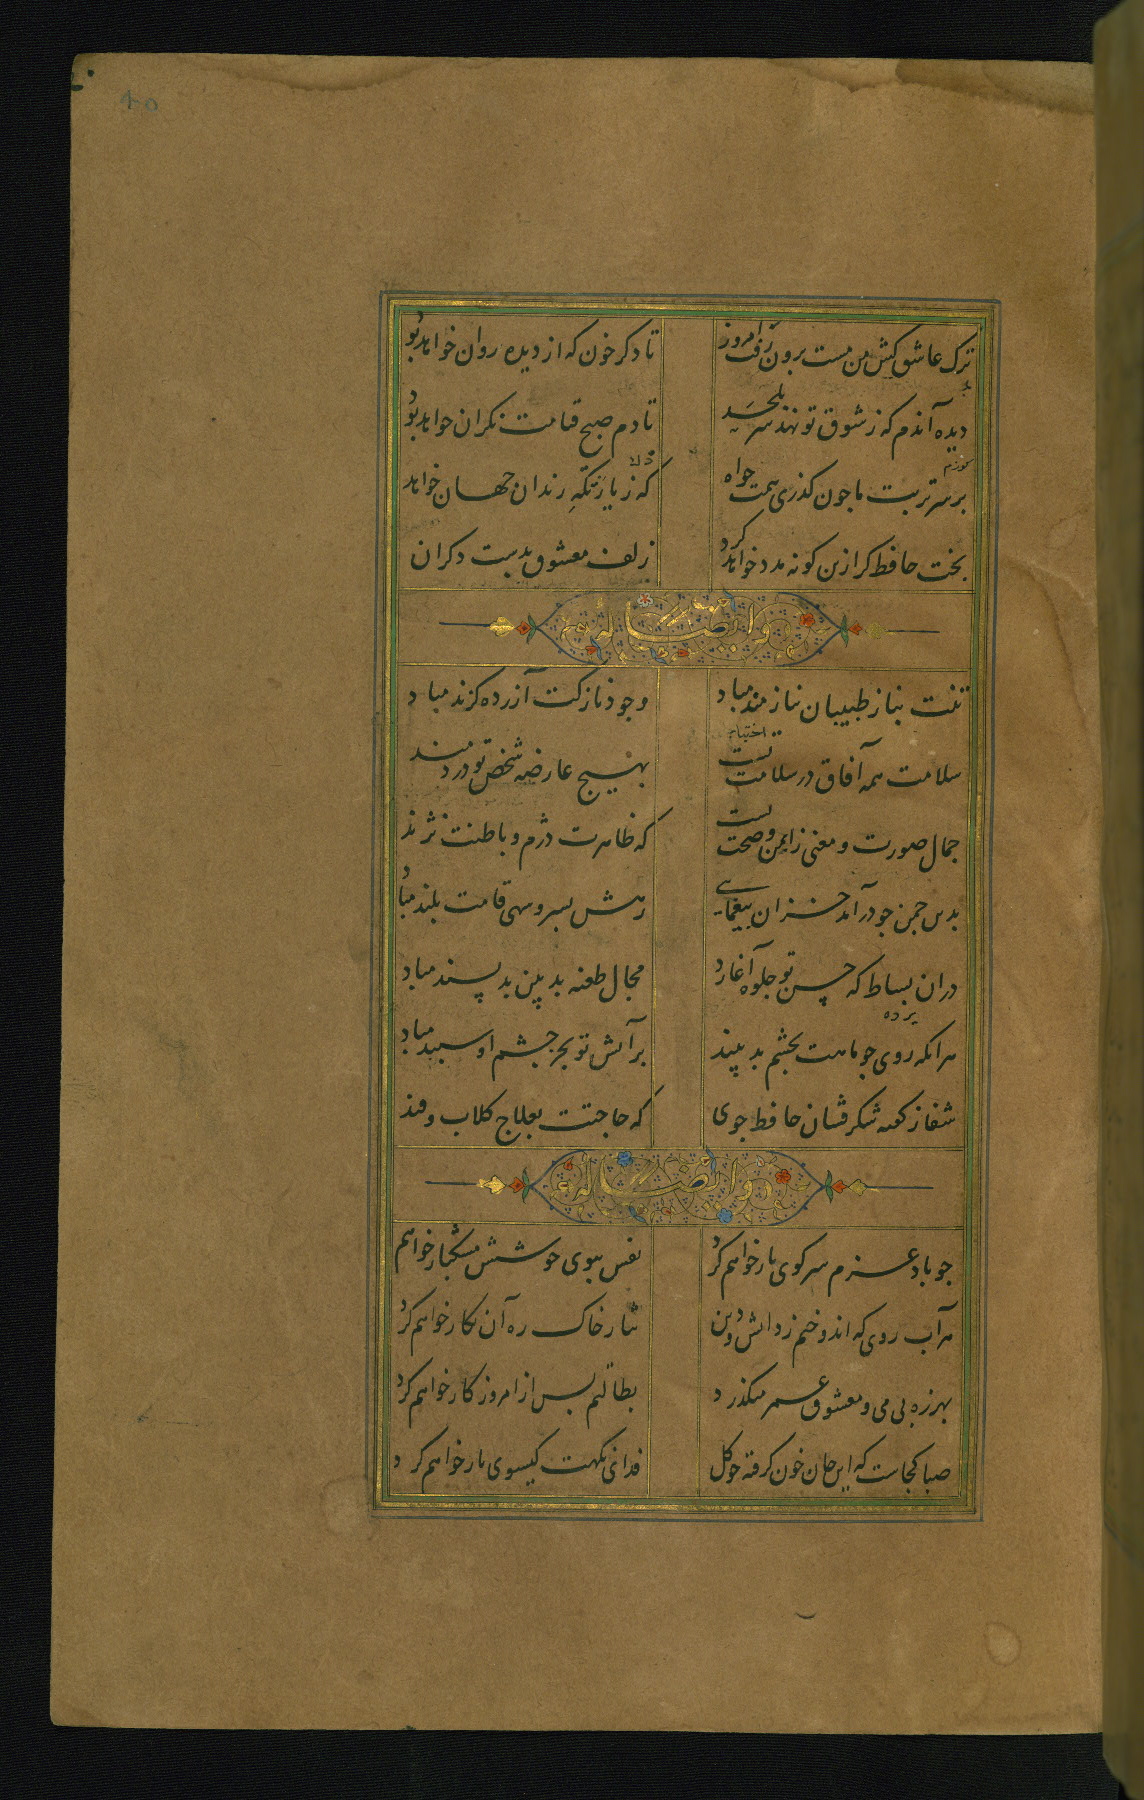 ترک عاشق کش من مست برون رفت امروز تا دکر خون که از دیده روان خواهد بود
دیده آندم که ز شوق تو نهد سر بلحد تا دم صبح قیامت نکران خواهد بود
بر سر تربت ما چون کذری همت خواه که زیارتکه رندان جهان خواهد
بخت حافظ کر ازین کونه مدد خواهد کرد زلف معشوق بدست دکران
وله ایضا
تنت بناز طبیبان نیازمند مباد وجود نازکت آزرده کزند مباد
سلامت همه آفاق در سلامت تست بهیچ عارضه شخص تو دردمند
جمال صورت و معنی ز امن و صحت تست که ظاهرت دژم و باطنت نژند
بدین چمن چو درآمد خزان یغمایی رهش بسرو سهی قامت بلند مباد
در آن بساط که حسن تو جلوه آغازد مجال طعنه بد بین بد پسند مباد
هر آنکه روی چو ماهت بچشم بد بیند بر آتش تو بجز چشم او سپند مباد
شفا ز کفته شکر فشان حافظ جوی که حاجتت بعلاج کلاب و قند
وله ایضا
چو باد عزم سر کوی یار خواهم کرد نفس ببوی خوشش مشکبار خواهم
هر آب روی که اندوختم ز دانش و دین نثار خاک ره آن نکار خواهم کرد
بهرزه بی می و معشوق عمر میکذرد بطالتم بس از امروز کار خواهم کرد
صبا کجاست که این جان خون کرفته چو کل فدای نکهت کیسوی یار خواهم کرد